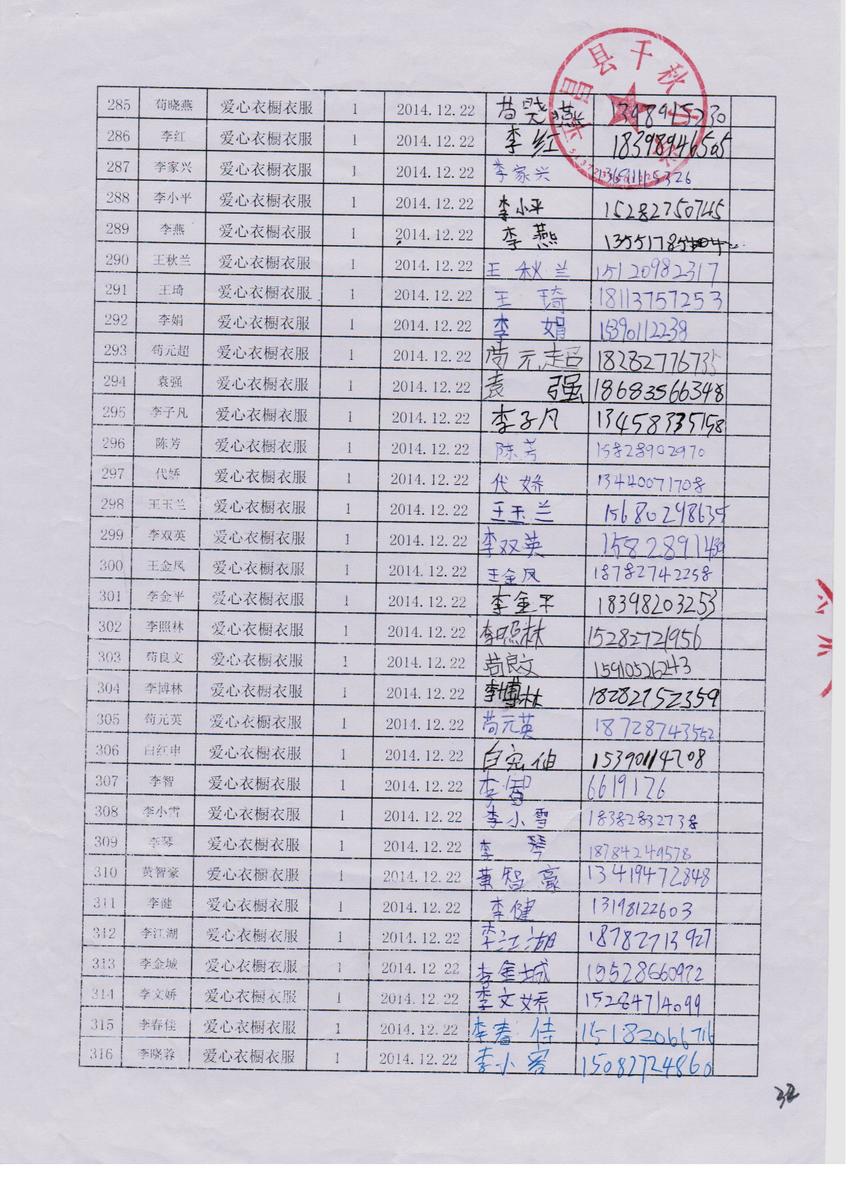 县千秋
285 苟晓燕 爱心衣橱衣服 1 2014.12.22 苟晓燕
286 李红 爱心衣橱衣服 1 2014.12.22 李红 18398946505
287 李家兴 爱心衣橱衣服 1 2014.12.22 李家兴
288 李小平 爱心衣橱衣服 1 2014.12.22 李小平 15282750745
289 李燕 爱心衣橱衣服 1 2014.12.22 李燕
290 王秋兰 爱心衣橱衣服 1 2014.12.22 王秋兰 15120982317
291 王琦 爱心衣橱衣服 1 2014.12.22 王琦 18113757253
292 李娟 爱心衣橱衣服 1 2014.12.22 李娟 15390112238
293 苟元超 爱心衣橱衣服 1 2014.12.22 苟元超 18282776735
294 袁强 爱心衣橱衣服 1 2014.12.22 袁强 18683566348
295 李子凡 爱心衣橱衣服 1 2014.12.22 李子凡 13458335158
296 陈芳 爱心衣橱衣服 1 2014.12.22 陈芳 15828902970
297 代娇 爱心衣橱衣服 1 2014.12.22 代娇 13440071708
298 王玉兰 爱心衣橱衣服 1 2014.12.22 王玉兰 15680298635
299 李双英 爱心衣橱衣服 1 2014.12.22 李双英
300 王金凤 爱心衣橱衣服 1 2014.12.22 王金凤 18782742258
301 李金平 爱心衣橱衣服 1 2014.12.22 李金平 18398203253
302 李照林 爱心衣橱衣服 1 2014.12.22 李照林 15282721956
303 苟良文 爱心衣橱衣服 1 2014.12.22 苟良文 15910526243
304 李博林 爱心衣橱衣服 1 2014.12.22 李博林 18282752359
305 苟元英 爱心衣橱衣服 1 2014.12.22 苟元英 18728743552
306 白红申 爱心衣橱衣服 1 2014.12.22 15390114708
307 李智 爱心衣橱衣服 1 2014.12.22 李智 6619126
308 李小雪 爱心衣橱衣服 1 2014.12.22 李小雪 18382832738
309 李琴 爱心衣橱衣服 1 2014.12.22 李琴 18784249578
310 黄智豪 爱心衣橱衣服 1 2014.12.22 黄智豪 13419472848
311 李健 爱心衣橱衣服 1 2014.12.22 李健 13198122603
312 李江湖 爱心衣橱衣服 1 2014.12.22 李江湖 18782713927
313 李金城 爱心衣橱衣服 1 2014.12.22 李金城 15528660972
314 李文娇 爱心衣橱衣服 1 2014.12.22 李文娇 15284714099
315 李春佳 爱心衣橱衣服 1 2014.12.22 李春佳 15182066716
316 李晓蓉 爱心衣橱衣服 1 2014.12.22 李小容 15082724860